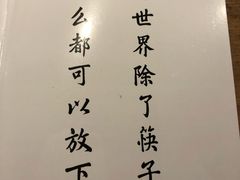 世界除了筷子
么都可以放下